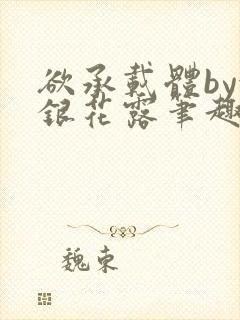 欲承載體by
銀花露筆趣
魏東